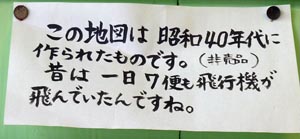 この地図は 昭和40年代に
作られたものです。(非売品)
昔は 一日7便も飛行機が
飛んでいたんですね。